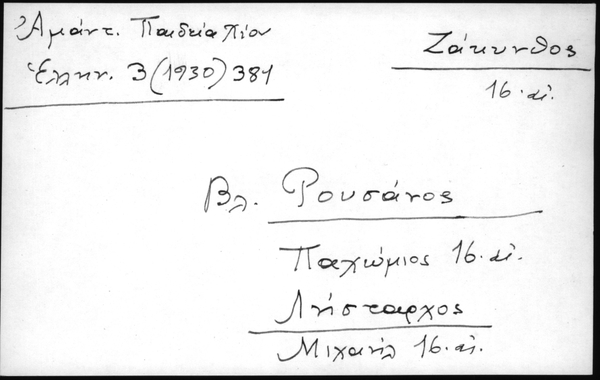 Ἀμάντ. Παιδεία Χίου
Ἑλλην. 3 (1930) 381
Ζάκυνθος
16. αἰ.
Βλ. Ρουσάνος
Παχώμιος 16. αἰ.
Λήσταρχος
Μιχαήλ 16. αἰ.